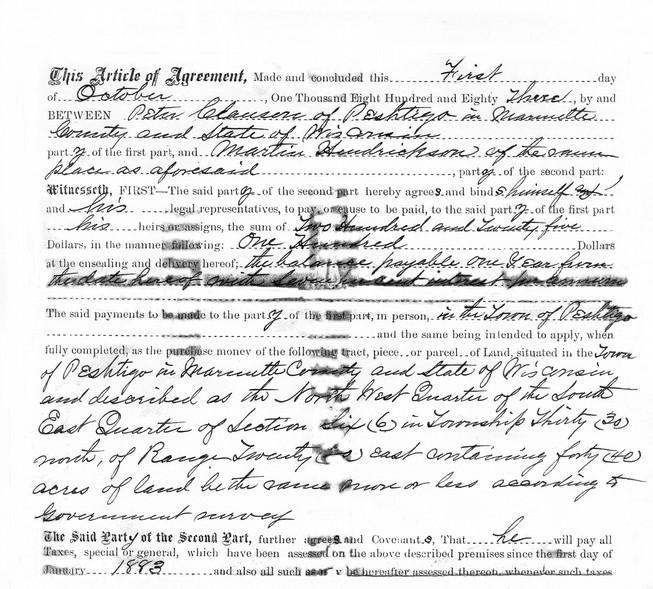 This Article of Agreement, Made and concluded this First day
of October, One Thousand Eight Hundred and Eighty Three, by and
BETWEEN Peter Clauson of Peshtigo in Marinette
County and State of Wisconsin
party of the first part, and Martin Hendrickson of the same
place as aforesaid, party of the second part:
Witnesseth, FIRST—The said party of the second part hereby agrees and binds himself
and his legal representatives, to pay, or cause to be paid, to the said party of the first part
his heirs or assigns, the sum of Two Hundred and Twenty five
Dollars, in the manner following: One Hundred Dollars
at the ensealing and delivery hereof; the balance payable one Year from
the date hereof with Seven per cent interest per annum
The said payments to be made to the party of the first part, in person, in the Town of Peshtigo
and the same being intended to apply, when
fully completed, as the purchase money of the following tract, piece or parcel of Land, situated in the Town
of Peshtigo in Marinette County and State of Wisconsin
and described as the North West Quarter of the South
East Quarter of Section Six (6) in Township Thirty (30)
north, of Range Twenty east containing forty (40)
acres of land be the same more or less according to
Government survey
The Said Party of the Second Part, further agrees and Covenants, That he will pay all
Taxes, special or general, which have been assessed on the above described premises since the first day of
January 1883 and also all such as may be hereafter assessed thereon, whenever such taxes